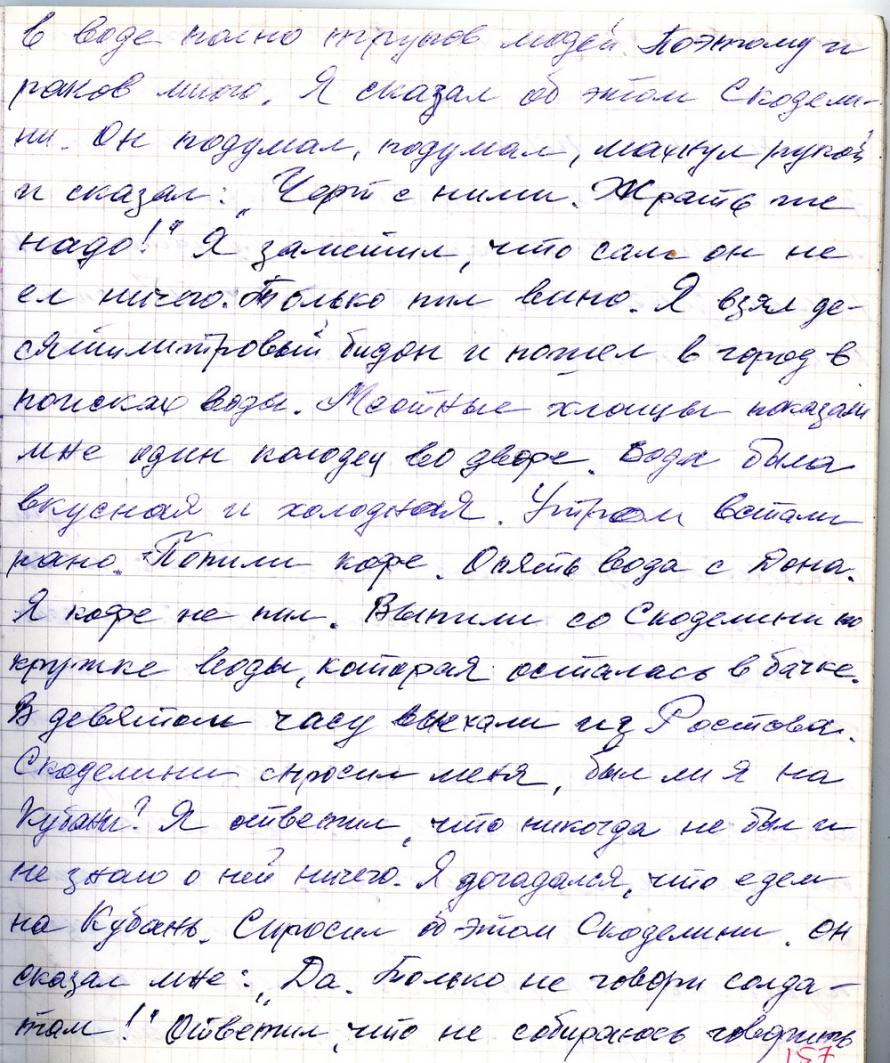 в воде полно трупов людей. Поэтому и
раков много. Я сказал об этом Скодели-
ни. Он подумал, подумал, махнул рукой
и сказал: „Черт с ними. Жрать же
надо!" Я заметил, что сам он не
ел ничего. Только пил вино. Я взял де-
сятилитровый бидон и пошел в город в
поисках воды. Местные хлопцы показали
мне один колодец во дворе. Вода была
вкусная и холодная. Утром встали
рано. Попили кофе. Опять вода с Дона.
Я кофе не пил. Выпили со Скоделини по
кружке воды, которая осталась в бачке.
В девятом часу выехали из Ростова.
Скоделини спросил меня, был ли я на
Кубани? Я ответил, что никогда не был и
не знаю о ней ничего. Я догадался, что едем
на Кубань. Спросил об этом Скоделини. Он
сказал мне: „Да. Только не говори солда-
там!" Ответил, что не собираюсь говорить
157